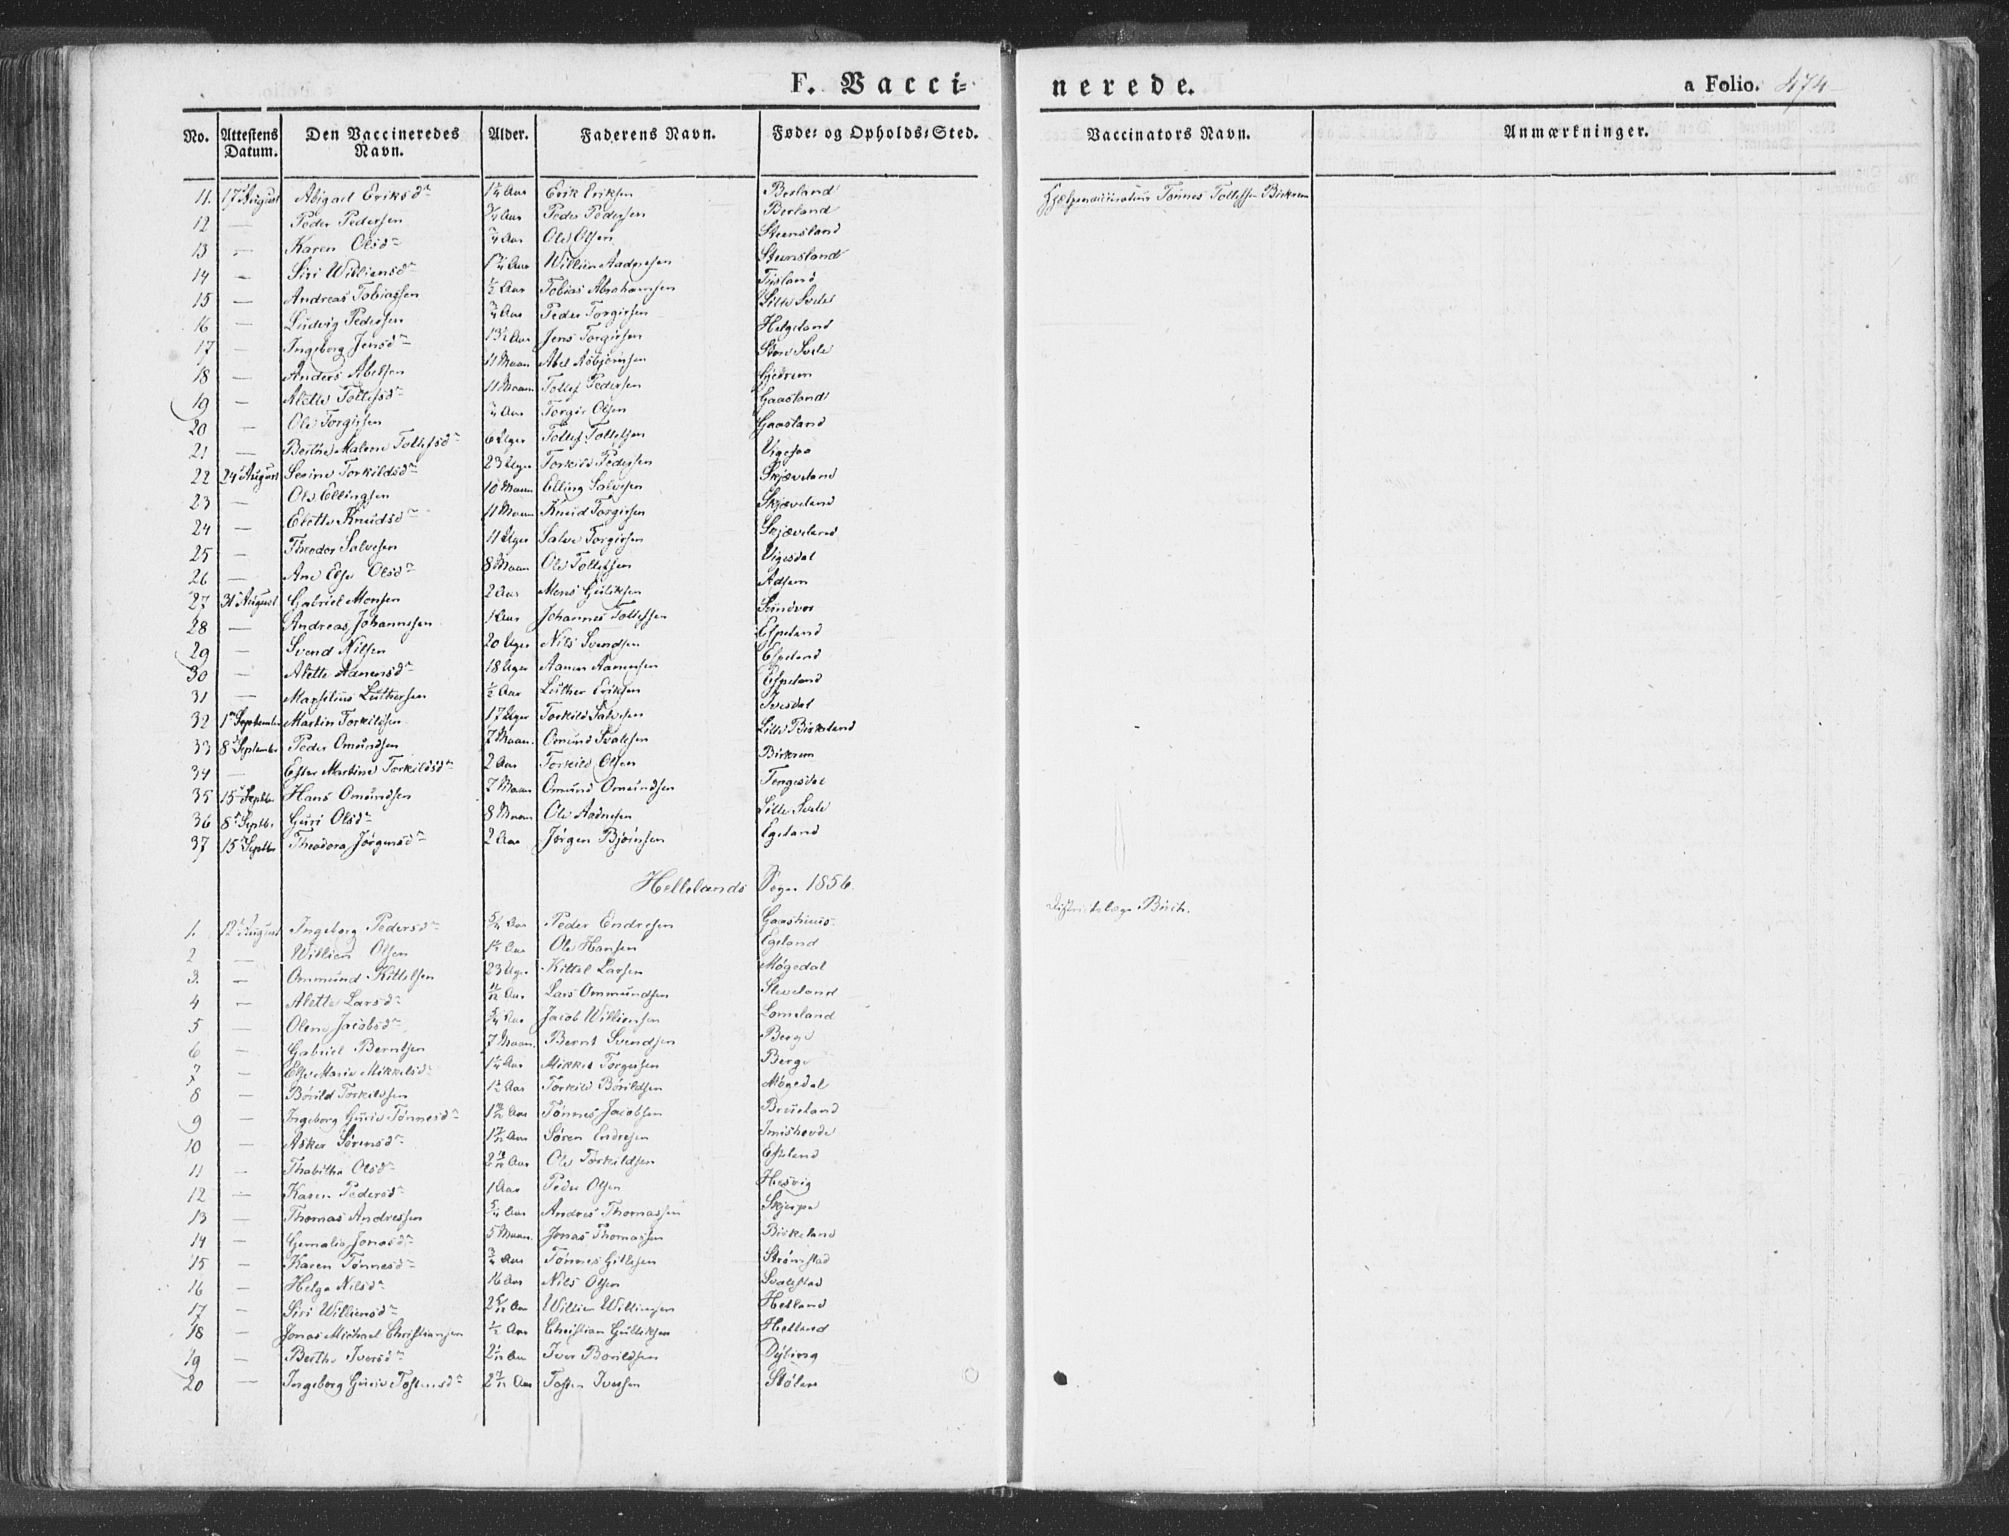 F. Vacci-
nerede.
a Folio. 474
No. Attestens Datum. Den Vaccineredes Navn. Alder. Faderens Navn. Føde- og Opholds-Sted. Vaccinators Navn. Anmærkninger.
11. 17 August Abigael Eriksdr 1¼ Aar Erik Eriksen Berland Hjelpevaccinateur Tønnes Tollefsen Birkrem
12 — Peder Pedersen ¾ Aar Peder Pedersen Berland
13 — Karen Olsdr ¾ Aar Ole Olsen Steensland
14 — Siri Williensdr Willien Aadnesen Steensland
15 — Andreas Tobiassen ½ Aar Tobias Abrahamsen
16 — Ludvig Pedersen ¾ Aar Peder Torgirsen Lille Svele
17 — Ingeborg Jensdr Jens Torgirsen Helgeland
18 — Anders Abelsen 11 Maan Abel Asbjørnsen Store Svele
19 — Alette Tollefsdr 11 Maan. Tollef Pedersen Gjedrem
20 — Ole Torgirsen ¾ Aar Torgir Olsen Gaasland
21 — Berthe Malene Tollefsdr 6 Uger Tollef Tollefsen Gaasland
22 24 August Serine Torkildsdr 23 Uger Torkild Pedersen Vigesaa
23 — Ole Ellingsen 10 Maan Elling Salvesen Skjæveland
24 — Elette Knudsdr 11 Maan Knud Torgirsen Skjæveland
25 — Theodor Salvesen 11 Uger Salve Torgirsen Skjæveland
26 — Ane Else Olsdr 8 Maan Ole Tollefsen Vigesdal
27 31 August Gabriel Monsen 2 Aar Mons Guliksen
28 — Andreas Johannesen 1 Aar Johannes Tollefsen Sundvor
29 — Svend Nilsen 20 Uger Nils Svendsen Espeland
30 — Alette Aanensdr 18 Uger Aanen Aanensen Espeland
31 — Marselius Luthersen ½ Aar Luther Eriksen Espeland
32 1 September Martin Torkildsen 17 Uger Torkild Salvesen Ivesdal
33 8 September Peder Omundsen 7 Maan. Omund Svalesen Lille Birkeland
34 — Ester Martine Torkildsdr 2 Aar Torkild Olsen Birkrem
35 15 Septbr Hans Omundsen 7 Maan Omund Omundsen Tengesdal
36 8 Septbr Guri Olsdr 8 Maan Ole Aadnesen Lille Svele
37 15 Septbr Theodora Jørgensdr 2 Aar Jørgen Bjørnsen Egeland
Hellelands Sogn 1856.
1. 12 August Ingeborg Pedersdr ¾ Aar Peder Endresen Districtslæge Birch.
2 — Willien Olsen Ole Hansen Egeland
3. — Ommund Kittelsen 23 Uger Kittel Larsen Møgedal
4 — Alette Larsdr Lars Ommundsen Sleveland
5 — Olene Jacobsdr Jacob Williensen Lomeland
6 — Gabriel Berntsen 7 Maan. Bernt Svendsen Berge
7 — Else Marie Mikkelsdr 1¼ Aar Mikkel Torgersen Berge
8 — Børild Torkildsen 1½ Aar Torkild Børildsen Møgedal
9 — Ingeborg Gurie Tønnesdr Tønnes Jacobsen Brueland
10 — Asker Sørensdr Søren Endresen
11 — Thabitha Olsdr Ole Torkildsen Eseland
12 — Karen Pedersdr 1 Aar Peder Olsen Hesvig
13 — Thomas Andressen Andres Thomassen Skjerpe
14 — Jonasdr 5 Maan. Jonas Thomassen Birkeland
15 — Karen Tønnesdr ¾ Aar Tønnes Gitlesen Strømstad
16 — Helga Nilsdr 16 Aar Nils Olsen Svalestad
17 — Siri Williensdr Willien Williensen Hetland
18 — Jonas Michael Christiansen ½ Aar Christian Gulliksen Hetland
19 — Berthe Iversdr Iver Børildsen Dybing
20 — Ingeborg Gurie Tostensdr Tosten Iversen Stølen